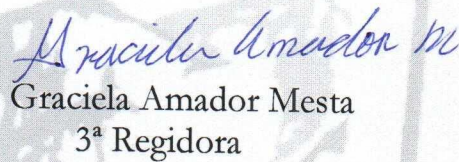 Graciela Amador M
Graciela Amador Mesta
3ª Regidora